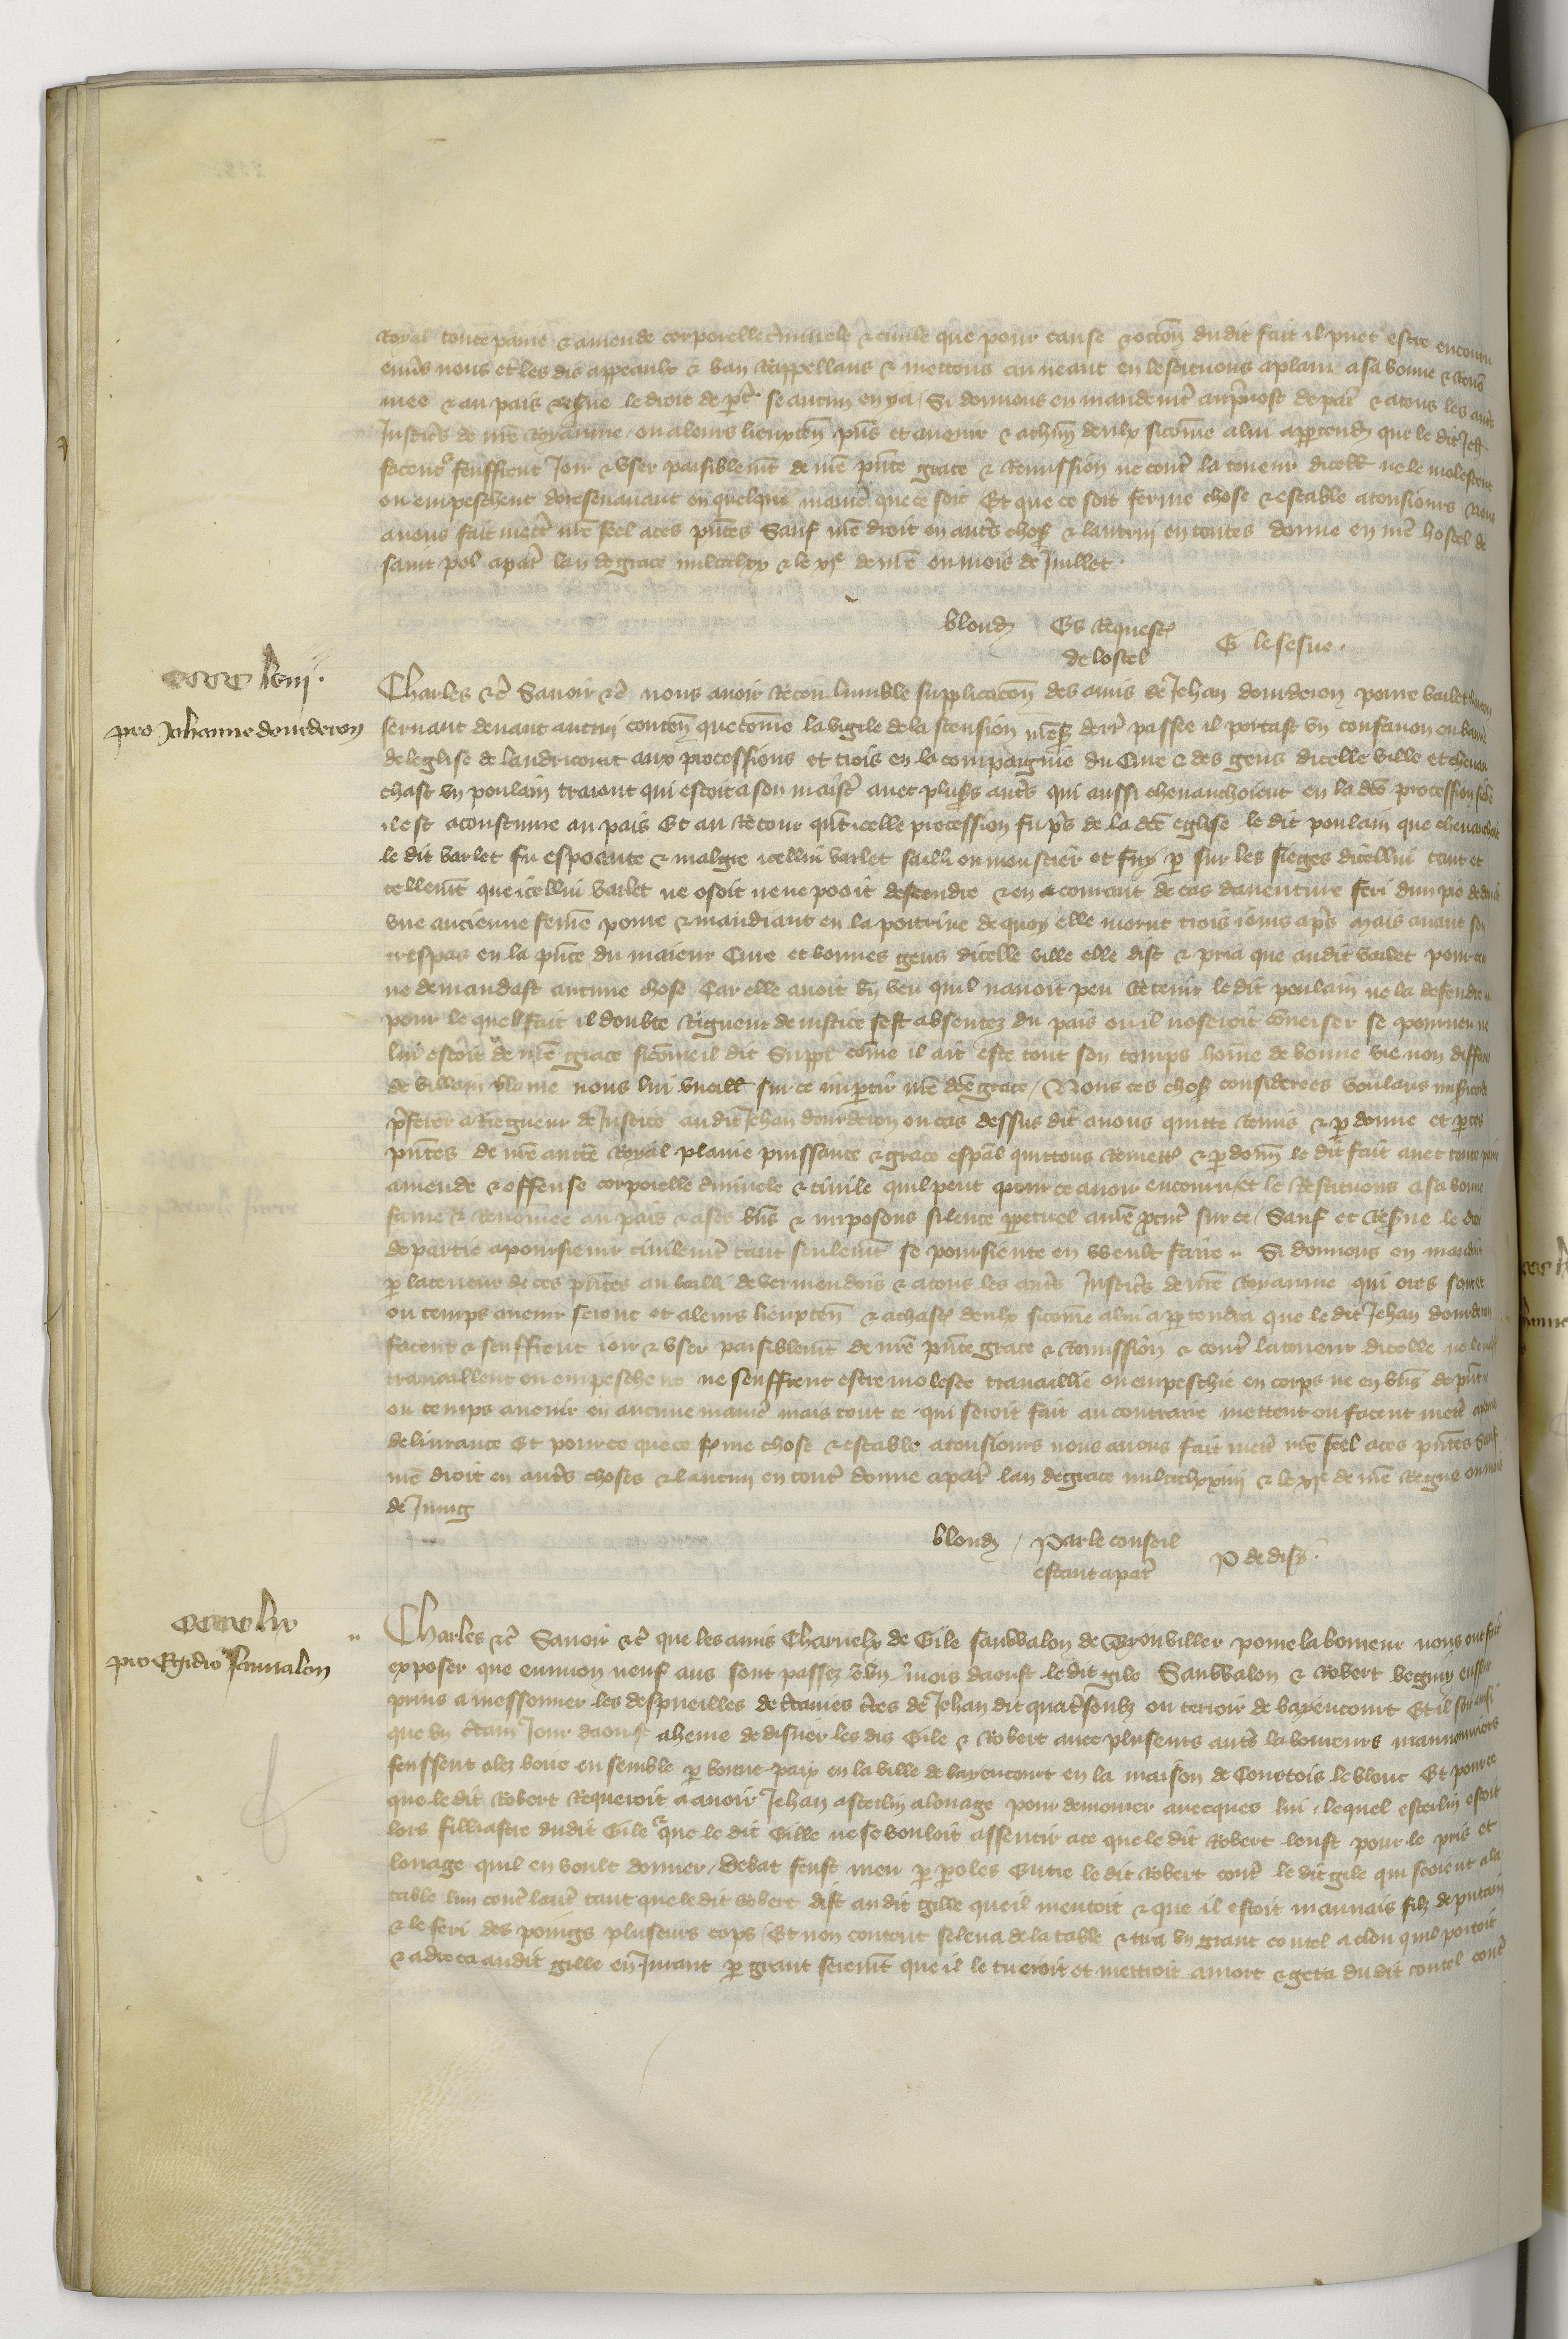 Royal toute paine & amende corporelle criminele & civile que pour cause & occon dudit fait il puet estre encouru
envs nous et les dis appeaulx & ban Rappellans & mettons au neant en le restituons aplain a sa bonne & Renō
mee & au pais Resve le droit de ptie se aucun en ya Si donnons en mandemt au pvost de paris & atous les autrs
Justicrs de nre Royaume ou aleurs lieuxten pns et avenir & achun deulx sicome alui appartendra que le dit Jeh
facent seuffrent Joir & user paisiblemt de nre pnte grace & Remission ne contre la teneur dicelle ne le molestent
ou empeschent doresenavant en quelque manie que ce soit Et que ce soit ferme chose & estable atousiours Nous
avons fait mettre nre seel aces pntes Sauf nre droit en autrs choses & lautruy en toutes donne en nre hostel de
saint pol aparis lan de grace mil ccc lxx & le xje de nre ou mois de Juillet
blond Es Requestes de lostel G lesesne
cccc lviij
pro Johanne dourderon
Charles &c Savoir &c nous avoir Receu lumble supplicacon des amis de Jehan dourderon povre varlet
servant devant aucun contenant que come la vigile de lascension nres derr passee il portast un confanon ou baniere
de leglise de landricourt aux processions et crois en la compaignie du Cure & des gens dicelle ville et chevau
chast un poulain traiant qui estoit a son maistre avec plusrs autrs qui aussi chevauchoient en la dce procession sicome
il est acoustume au pais Et au Retour qnt icelle procession fu prs de la dce eglise le dit poulain que chevauchoit
le dit varlet fu espovente & malgre icellui varlet sailli ou moustier et fuy p sur les sieges dicellui tant et
tellemt que icellui varlet ne osoit ne ne pooit descendre & en acourant de cas daventure feri dun pie de
une ancienne feme povre & mandiant en la poitrine de quoy elle morut trois jours aprs Mais avant son
trespas en la pnce du maieur Cure et bonnes gens dicelle ville elle dist & pria que audit varlet pour ce
ne demandast aucune chose Car elle avoit bn veu quil navoit peu Retenir le dit poulain ne la defendre
pour le quel fait il doubte Rigueur de justice sest absentez du pais ou il noseroit converser se pourveu ne
lui estoit de nre grace sicome il dit Suppl come il ait este tout son temps home de bonne vie non diffame
de villain blame nous lui vueillons sur ce impartir nre dce grace Nous ces choses considerees voulans misericorde
pferer a Riegueur de Justice au dit Jehan dourderon ou cas dessus dit avons quitte Remis & pdonne et p ces
pntes de nre autte Royal plaine puissance & grace espal quittons Remettons & pdonns le dit fait avec toute paine
amende & offense corporelle criminele & civile quil peut pour ce avoir encouru et le Restituons a sa bonne
fame & Renommee au pais & ases bns & imposons silence ppetuel anre pcurr sur ce Sauf et Resve le droit
de partie apoursievir civilemt tant seulemt se poursiente en vveult faire Si donnons en mandemt
p lateneur de ces pntes au bailli de vermendois & atous les autrs Justicrs de nre Royaume qui ores sont et
ou temps avenir seront et aleurs lieuxten & achascun deulx sicome alui apptendra que le dit Jehan dourderon
facent & seuffrent joir & user paisiblemt de nre pnte grace & Remission & contre lateneur dicelle ne le
travaillent ou empeschent ne seuffrent estre moleste travaillie ou empeschie en corps ne en bns de pnt
ou temps avenir en aucune manie mais tout ce qui seroit fait au contraire mettent ou facent mettre aplaine
delivrance Et pour ce que ce soit fme chose & estable atousiours nous avons fait mettre nre seel aces pntes Sauf
nre droit en autrs choses & lautruy en toutes donne aparis lan de grace mil ccc lxxiiij & le xje de nre Regne ou mois
de Juing
blond Par le conseil estant aparis P de disy
cccc lix
pro Egidio Sauwalon
Charles &c Savoir &c que les amis Charnelx de Gile sauwalon de Gronviller povre laboureur nous ont fait
exposer que environ neuf ans sont passez ou mois daoust le dit gile Sauwalon & Robert beguin eussent
prins a messonner les despueilles de ctaines tres de Jehan dit quatresoulz ou teroir de bayencourt Et il soit ainsi
que un ctain Jour daoust aheure de disner les dis Gile & Robert avec pluseurs autrs laboureurs mannouvriers
feussent alez boire ensemble p bonne paix en la ville de bayencourt en la maison de Courtois le blont Et pour ce
que le dit Robert Requeroit aavoir Jehan asselin alouage pour demourer avecques lui lequel asselin estoit
lors filliastre dudit Gile que le dit Gille ne se vouloit assentir ace que le dit Robert leust pour le pris et
louage quil en voult donner debat feust meu p paroles entre le dit Robert contre le dit gile qui seoient ala
table lun contre lautre tant que le dit Robert dist audit gille que il mentoit & que il estoit mauvais filz de putain
& le feri des poings pluseurs cops Et non content se leva de la table & tira un grant coutel a clou quil portoit
& adreca audit gille en Jurant p grant seremt que il le tueroit et mettroit amort & geta dudit coutel contre